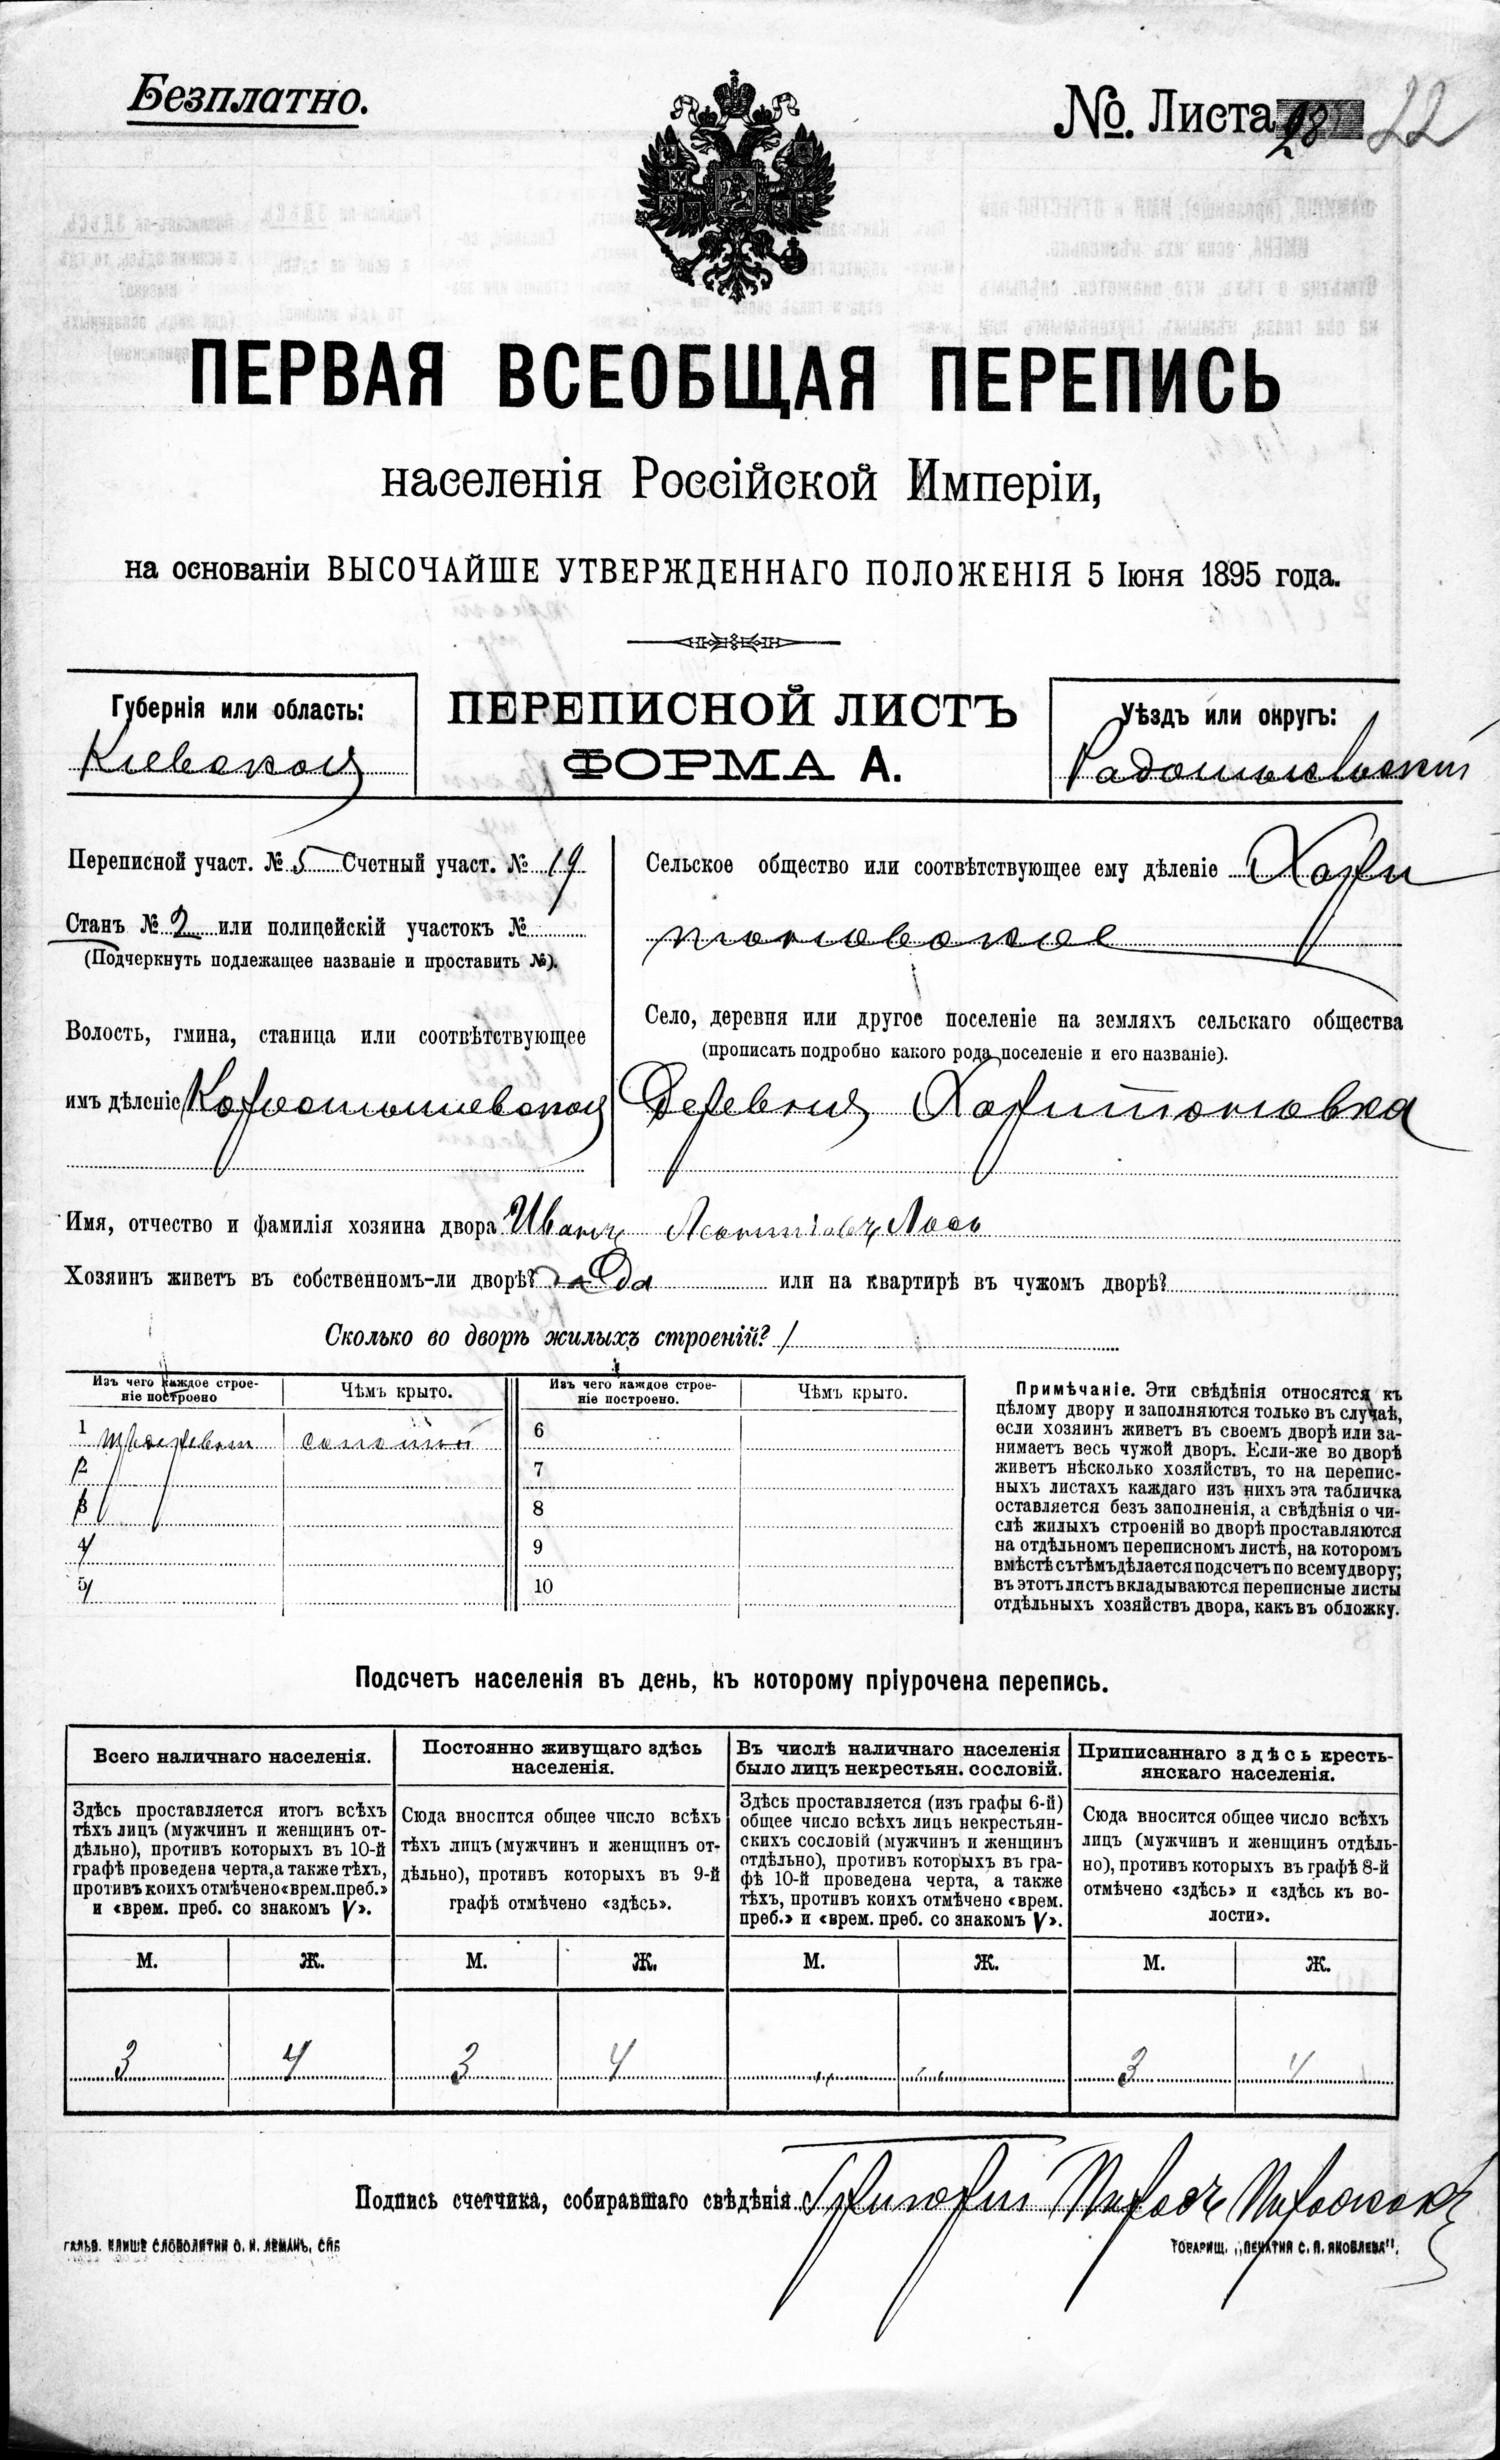 Безплатно.
№. Листа 28 22
ПЕРВАЯ ВСЕОБЩАЯ ПЕРЕПИСЬ
населенія Россійской Имперіи,
на основаніи ВЫСОЧАЙШЕ УТВЕРЖДЕННАГО ПОЛОЖЕНІЯ 5 Іюня 1895 года.
Губернія или область:
Кіевская
ПЕРЕПИСНОЙ ЛИСТЪ
ФОРМА А.
Уѣздъ или округъ:
Радомысльскій
Переписной участ. № 5 Счетный участ. № 19
Станъ № 2 или полицейскій участокъ №
(Подчеркнуть подлежащее названіе и проставить №).
Волость, гмина, станица или соотвѣтствующее
имъ дѣленіе Коростышевская
Сельское общество или соотвѣтствующее ему дѣленіе Хари
тоновское
Село, деревня или другое поселеніе на земляхъ сельскаго общества
(прописать подробно какого рода поселеніе и его названіе).
Деревня Харитоновка
Имя, отчество и фамилія хозяина двора Иванъ Леонтіевъ Лось
Хозяинъ живетъ въ собственномъ-ли дворѣ? да Да или на квартирѣ въ чужомъ дворѣ?
Сколько во дворѣ жилыхъ строеній? 1
Изъ чего каждое строе-
ніе построено
Чѣмъ крыто.
Изъ чего каждое строе-
ніе построено.
Чѣмъ крыто.
1 соломой
2
3
4
5
6
7
8
9
10
Примѣчаніе. Эти свѣдѣнія относятся къ
цѣлому двору и заполняются только въ случаѣ,
если хозяинъ живетъ въ своемъ дворѣ или за-
нимаетъ весь чужой дворъ. Если-же во дворѣ
живетъ нѣсколько хозяйствъ, то на перепис-
ныхъ листахъ каждаго изъ нихъ эта табличка
оставляется безъ заполненія, а свѣдѣнія о чи-
слѣ жилыхъ строеній во дворѣ проставляются
на отдѣльномъ переписномъ листѣ, на которомъ
вмѣстѣ съ тѣмъ дѣлается подсчетъ по всему двору;
въ этотъ листъ вкладываются переписные листы
отдѣльныхъ хозяйствъ двора, какъ въ обложку.
Подсчетъ населенія въ день, къ которому пріурочена перепись.
Всего наличнаго населенія.
Здѣсь проставляется итогъ всѣхъ
тѣхъ лицъ (мужчинъ и женщинъ от-
дѣльно), противъ которыхъ въ 10-й
графѣ проведена черта, а также тѣхъ,
противъ коихъ отмѣчено «врем. преб.»
и «врем. преб. со знакомъ V».
Постоянно живущаго здѣсь
населенія.
Сюда вносится общее число всѣхъ
тѣхъ лицъ (мужчинъ и женщинъ от-
дѣльно), противъ которыхъ въ 9-й
графѣ отмѣчено «здѣсь».
Въ числѣ наличнаго населенія
было лицъ некрестьян. сословій.
Здѣсь проставляется (изъ графы 6-й)
общее число всѣхъ лицъ некрестьян-
скихъ сословій (мужчинъ и женщинъ
отдѣльно), противъ которыхъ въ гра-
фѣ 10-й проведена черта, а также
тѣхъ, противъ коихъ отмѣчено «врем.
преб.» и «врем. преб. со знакомъ V».
Приписаннаго здѣсь кресть-
янскаго населенія.
Сюда вносится общее число всѣхъ
лицъ (мужчинъ и женщинъ отдѣль-
но), противъ которыхъ въ графѣ 8-й
отмѣчено «здѣсь» и «здѣсь къ во-
лости».
М. Ж. М. Ж. М. Ж. М. Ж.
3 4 3 4 " " 3 4
Подпись счетчика, собиравшаго свѣдѣнія Григорій
ГАЛЬВ. КЛИШЕ СЛОВОЛИТНИ О. И. ЛЕМАНЪ, СПБ
ТОВАРИЩ. „ПЕЧАТНЯ С. П. ЯКОВЛЕВА".